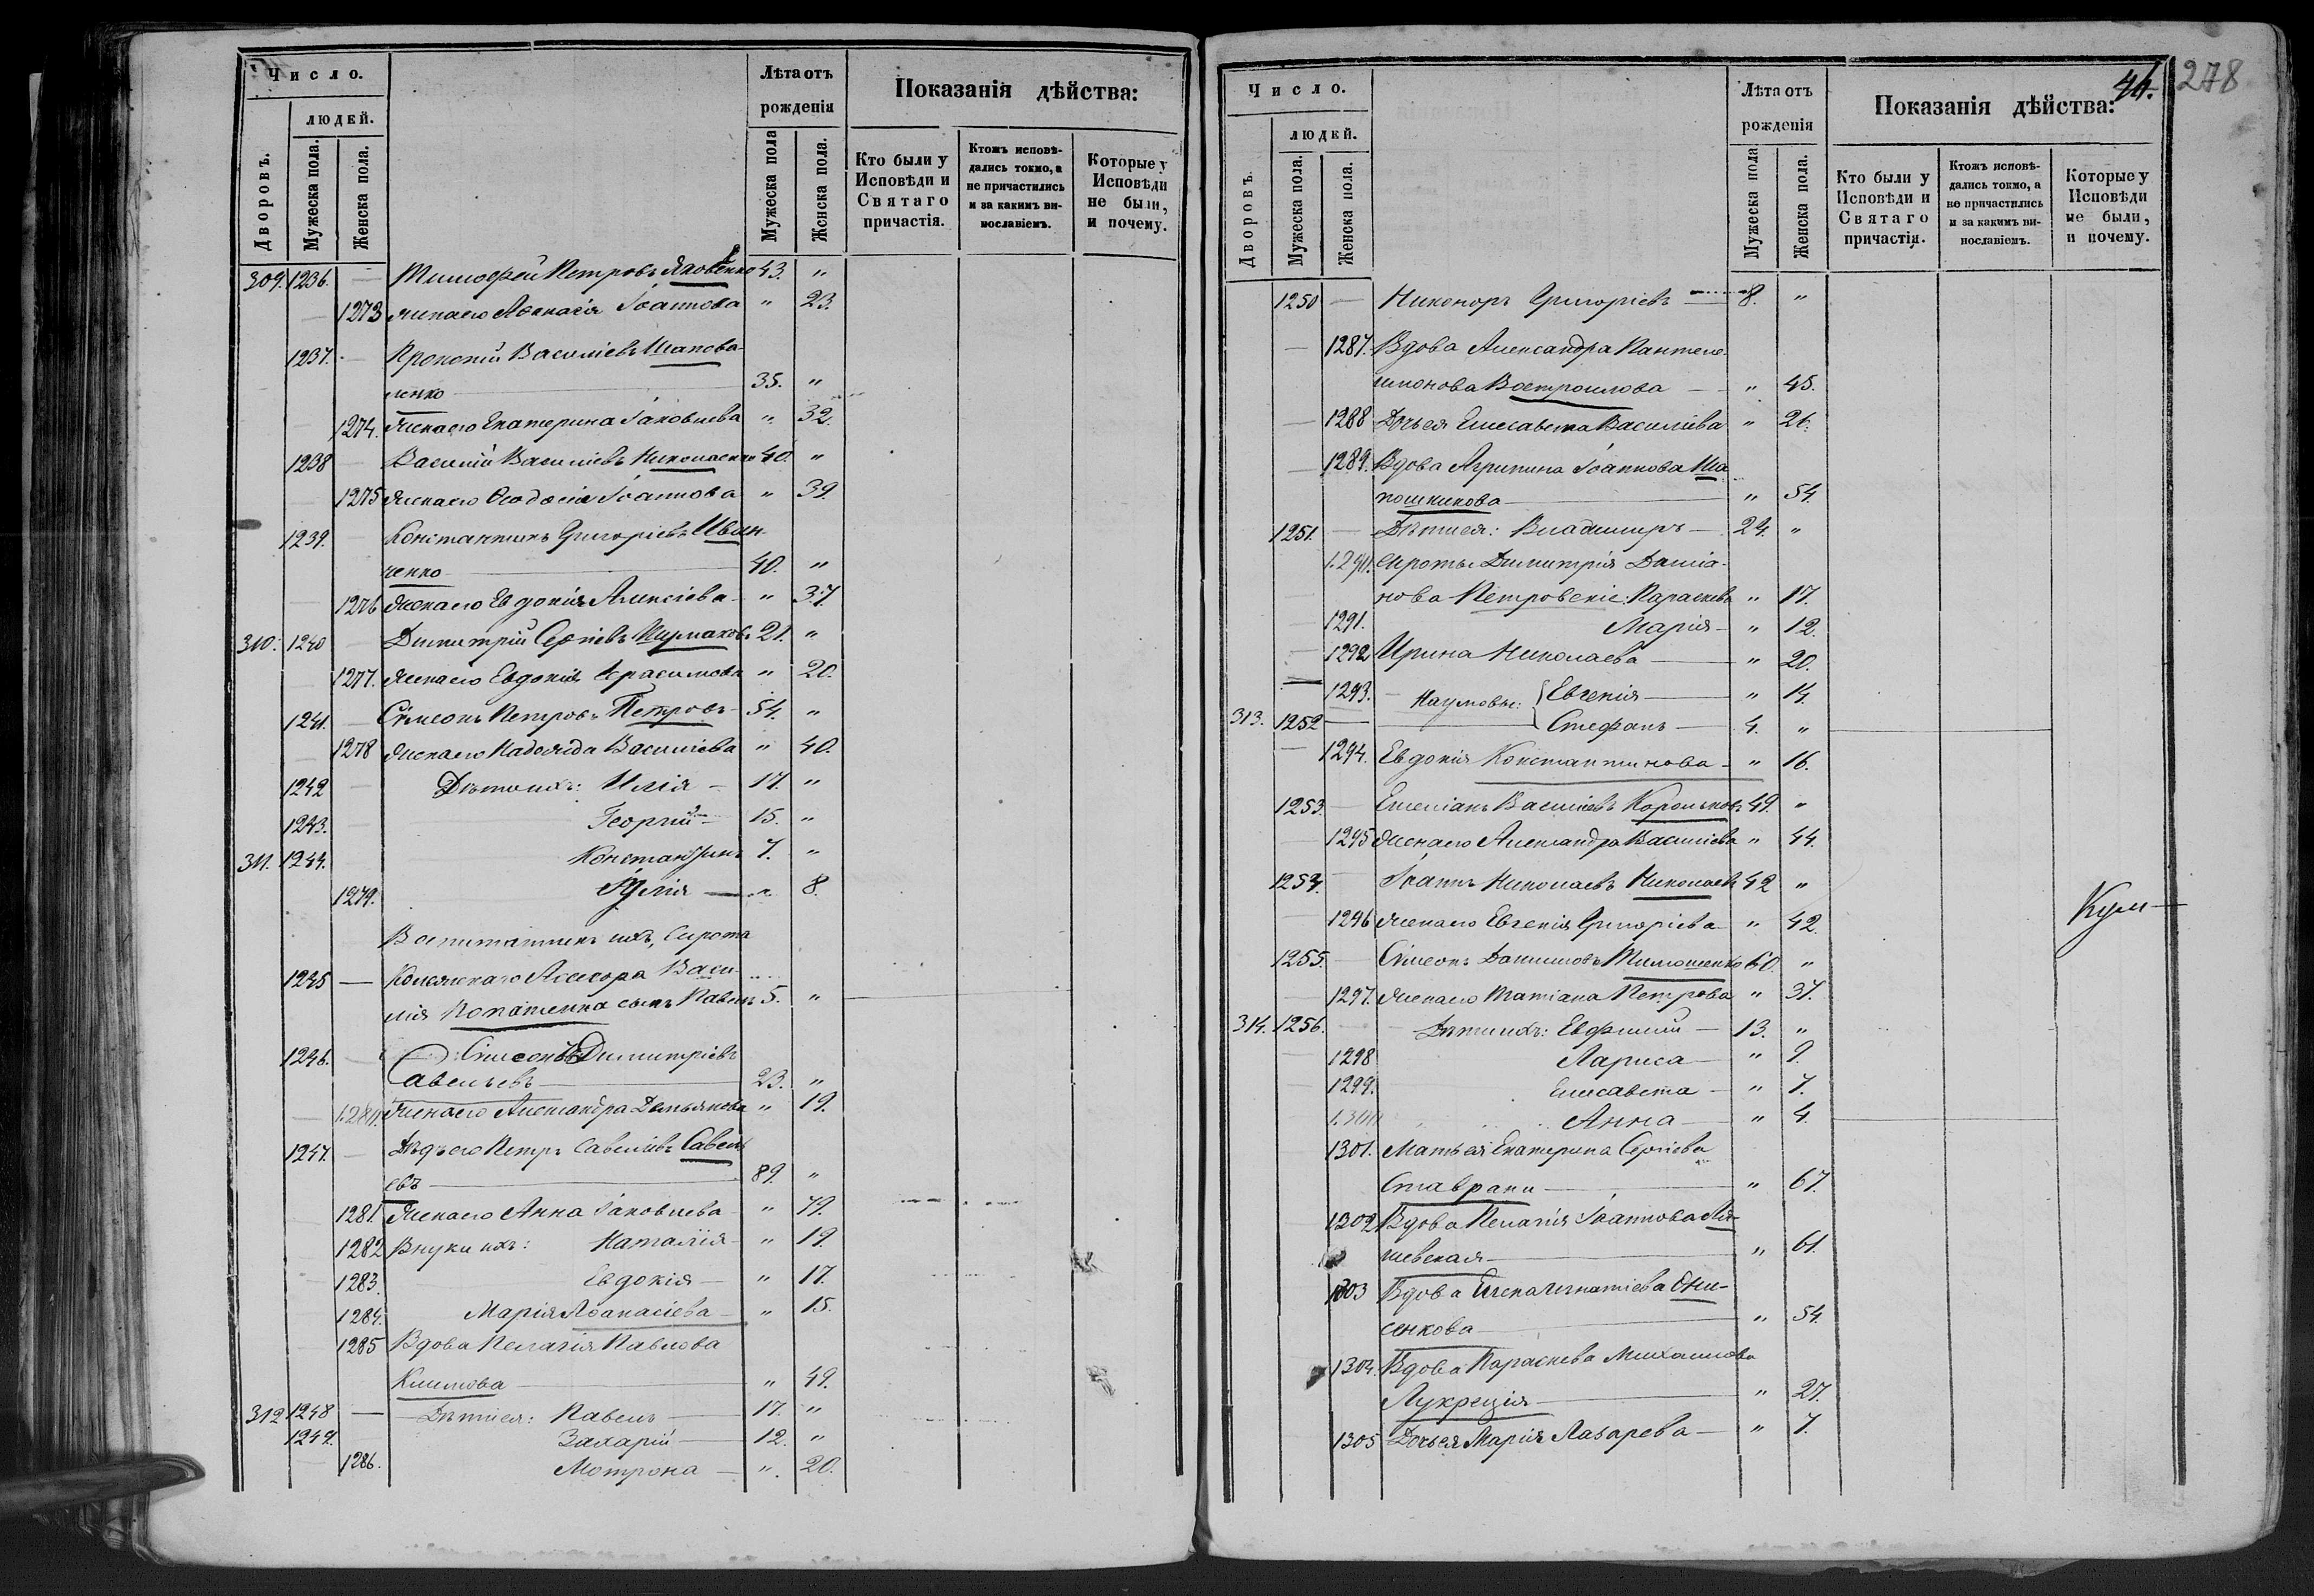 Число.
людей.
Дворовъ.
Мужеска пола.
Женска пола.
Лѣта отъ
рожденія
Мужеска пола
Женска пола.
Показанія дѣйства:
Кто были у
Исповѣди и
Святаго
причастія.
Ктожъ исповѣ-
дались токмо, а
не причастились
и за какимъ ви-
нославіемъ.
Которые у
Исповѣди
не были,
и почему.
309. 1236. — Тимофей Петровъ Яковенко 43. "
1273 Жена его Аѳанасія Іоаннова " 23.
1237. — Прокопій Василіевъ Шапова-
ленко 35. "
1274. Жена его Екатерина Іаковлева " 32.
1238 — Василій Василіевъ Николаенко 40. "
1275 Жена его Ѳеодосія Іоаннова " 39.
1239. Константинъ Григоріевъ Иван-
ченко 40. "
1276 Жена его Евдокія Алексіева " 37
310. 1240 Димитрій Сергіевъ Шумаковъ 21. "
1277. Жена его Евдокія Герасимова " 20.
1241. — Сѵмеонъ Петровъ Петровъ 54. "
1278 Жена его Надежда Василіева " 40.
1242 — Дѣти ихъ: Илія — 17. "
1243. Георгій — 15. "
311. 1244. Константинъ 7. "
1279. Іулія — " 8.
Воспитанникъ ихъ, сирота
1245 — Колежскаго Асесора Васи-
лія Попатенка сынъ Павелъ 5. "
1246. Сѵмеонъ Димитріевъ
Савельевъ 23. "
1280. Жена его Александра Демьянова " 19.
1247. — Дѣдъ его Петръ Савеліевъ Савель-
евъ 89. "
1281. Жена его Анна Іаковлева " 79.
1282 Внуки ихъ: Наталія " 19.
1283. Евдокія — " 17.
1284. Марія Аѳанасіева " 15.
1285 Вдова Пелагія Павлова
Климова " 49.
312 1248 — Дѣти ея: Павелъ 17. "
1249. Захарій 12. "
1286. Мотрона — " 20.
44.
278
Число.
людей.
Дворовъ.
Мужеска пола.
Женска пола.
Лѣта отъ
рожденія
Мужеска пола
Женска пола.
Показанія дѣйства:
Кто были у
Исповѣди и
Святаго
причастія.
Ктожъ исповѣ-
дались токмо, а
не причастились
и за какимъ ви-
нославіемъ.
Которые у
Исповѣди
не были,
и почему.
1250 — Никоноръ Григоріевъ — 8. "
1287. Вдова Александра Пантеле-
имонова Востроилова — " 45.
1288 Дочь ея Елисавета Василіева " 26.
1289. Вдова Агрипина Іоаннова Ша-
пошникова " 54.
1251. — Дѣти ея: Владимиръ — 24. "
1290. Сироты Димитрія Даміа-
нова Петровскіе: Параскева " 17.
1291. Марія — " 12.
1292 Ирина Николаева " 20.
1293. — Наумовы: Евгенія " 14.
313. 1252 — Стефанъ — 4. "
1294. Евдокія Константинова — " 16.
1253. — Емеліанъ Василіевъ Корольковъ 49. "
1295 Жена его Александра Василіева " 44.
1254. Іоаннъ Николаевъ Николаевъ 42 "
1296 Жена его Евгенія Григоріева " 42.
1255. Сѵмеонъ Даниловъ Тимошенко 60. "
1297. Жена его Татіана Петрова " 37.
314. 1256. Дѣти ихъ: Евфимій — 13. "
1298 Лариса — " 9.
1299. Елисавета — " 7.
1300 Анна " 4.
1301. Мать ея Екатерина Сергіева
Ставраки " 67.
1302 Вдова Пелагія Іоаннова Ля-
шевская " 61.
1303 Вдова Елена Игнатіева Они-
сенкова " 54.
1304. Вдова Параскева Михаилова
Лукреція " 27.
1305 Дочь ея Марія Лазарева — " 7.